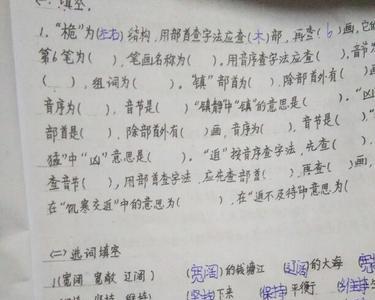 一、填空。
1. "桅"为(左右)结构,用部首查字法应查(木)部,再查(6)画,它的
第6笔为( ),笔画名称为( ),用音序查字法应查( ),音节为
( ),组词为( )。"镇"部首为( ),除部首外有( )
音序为( ),音节是( )"镇静"中"镇"的意思是( )。"凶
部首是( ),除部首外有( )画,音序为( ),音节是( )。"
猛"中"凶"意思是( )。"迫"按音序查字法,先查( ),
查音节( ),用部首查字法,应先查部首( ),再查( )画,
在"饥寒交迫"中的意思为( ),在"迫不及待"中意思为( )
(二)选词填空
1(宽阔 宽敞 辽阔) (宽阔)的钱塘江 (辽阔)的大海 (宽
坚持 (坚持)下来 (保持)平衡 (维持